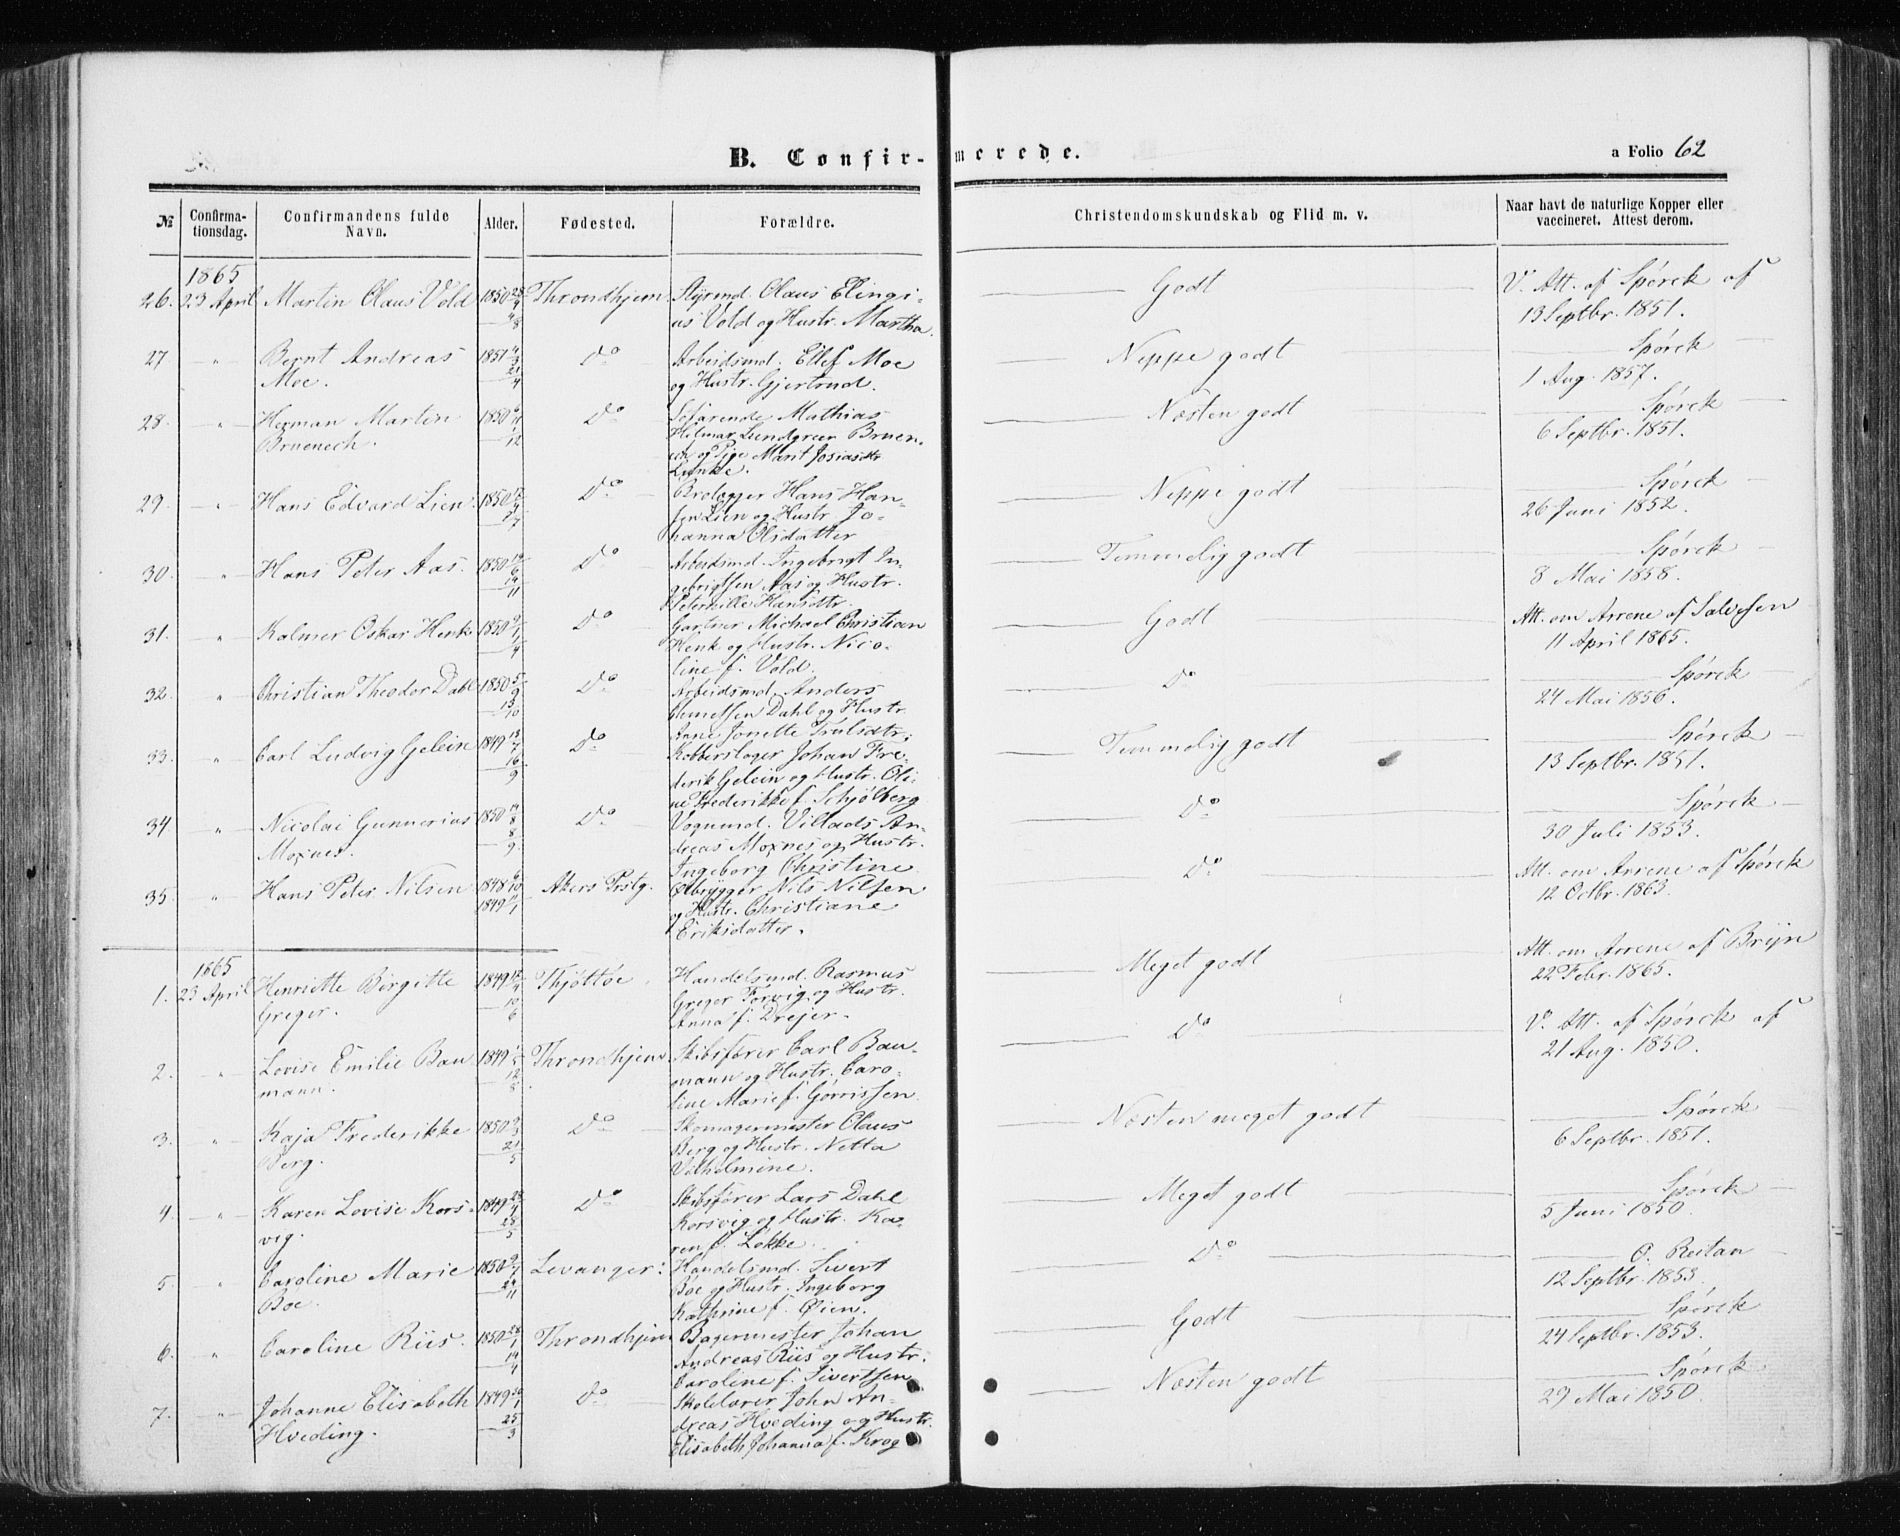 B. Confir-merede.
a Folio 62
№
Confirma-
tionsdag.
Confirmandens fulde
Navn.
Alder.
Fødested.
Forældre.
Christendomskundskab og Flid m. v.
Naar havt de naturlige Kopper eller
vaccineret. Attest derom.
1865
26. 23 April Martin Claus Vold 1850 Throndhjem Styrmd. Claus Elingi-
us Vold og Hustr. Martha.
Godt
V. Att. af Spørck af
13 Septbr. 1851.
27 " Bernt Andreas
Moe.
1851 Do Arbeidsmd. Ellef Moe
og Hustr. Gjertrud.
Neppe godt
Spørck
1 Aug. 1857.
28. " Herman Martin
Bruenech.
1850 Do Søfarende Mathias
Hilmar Lundgreen Bruen-
ech og Pige Marit Josiasdtr
Linke.
Næsten godt
Spørck
6 Septbr. 1851.
29. " Hans Edvard Lien. 1850 Do Brolægger Hans Han-
sen Lien og Hustr. Jo-
hanna Olsdatter
Neppe godt
Spørck
26 Juni 1852.
30. " Hans Peter Aas. 1850 Do Arbeidsmd. Ingebrigt In-
gebrigtsen Aas og Hustr.
Peternille Hansdtr.
Temmelig godt
Spørck
8 Mai 1858.
31. " Kalmer Oskar Henk 1850 Do Gartner Michael Christian
Henk og Hustr. Nico-
line f. Vold.
Godt
Att. om Arrene af Salvesen
11 April 1865.
32. " Christian Theodor Dahl 1850 Do Arbeidsmd. Anders
Dahl og Hustr.
Ane Jonette Trulsdtr.
Do
Spørck
24 Mai 1856.
33. " Carl Ludvig Gelein 1849 Do Kobberslager Johan Fre-
derik Gelein og Hustr. Oli-
ne Frederikke f. Schjølberg
Temmelig godt
Spørck
13 Septbr. 1851.
34 " Nicolai Gunnerius
Moxnes.
1850 Do Vognmd. Villads An-
dreas Moxnes og Hustr.
Ingeborg Christine
Do
Spørck
30 Juli 1853.
35. " Hans Peter Nilsen 1848 Akers Prstg. Ølbrygger Nils Nilsen
1849 og Hustr. Christiane
Eriksdatter.
Do
Att. om Arrene af Spørck
12 Octbr. 1863.
1865
1. 23 April Henriette Birgitte
Greger.
1849 Thjøttøe Handelsmd. Rasmus
Greger Forvig og Hustr.
Anna f. Drejer.
Meget godt
Att. om Arrene af Bryn
22 Febr. 1865.
2. " Lovise Emilie Bau
mann.
1849 Throndhjem Skibsfører Carl Bau-
mann og Hustr. Caro-
line Marie f. Gørrissen
Do
V. Att. af Spørck af
21 Aug. 1850.
3. " Kaja Frederikke
Berg.
1850 Do Skomagermester Claus
Berg og Hustr. Netta
Vilhelmine.
Næsten meget godt
Spørck
6 Septbr. 1851.
4. " Karen Lovise Kors-
vig.
1849 Do Skibsfører Lars Dahl
Korsvig og Hustr. Ka-
ren f. Løkke.
Meget godt
Spørck
5 Juni 1850.
5. " Caroline Marie
Boe.
1850 Levanger: Handelsmd. Sivert
Boe og Hustr. Ingeborg
Kathrine f. Øien.
Do
O. Reitan
12 Septbr. 1853.
6. " Caroline Riis. 1850 Throndhjem Bagermester Johan
Andreas Riis og Hustr.
Caroline f. Sivertsen
Godt
Spørck
24 Septbr. 1853.
7. " Johanne Elisabeth
Hveding.
1849 Do Skolelærer John An-
dreas Hveding og Hustr.
Elisabeth Johanna f. Krog
Næsten godt
Spørck
29 Mai 1850.